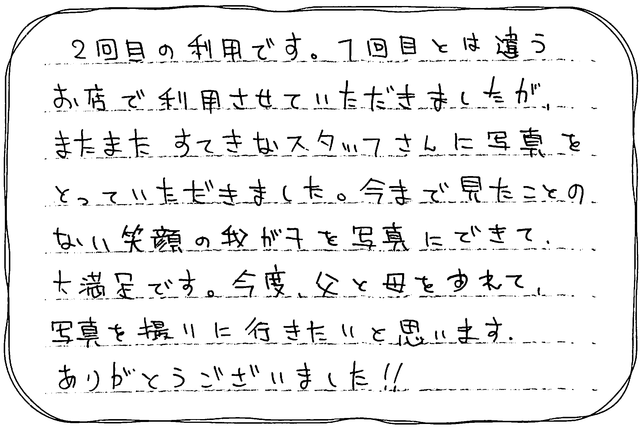 2回目の利用です。1回目とは違う
お店で利用させていただきましたが、
またまたすてきなスタッフさんに写真を
とっていただきました。今まで見たことの
ない笑顔の我が子を写真にできて、
大満足です。今度、父と母をすれて、
写真を撮りに行きたいと思います。
ありがとうございました!!